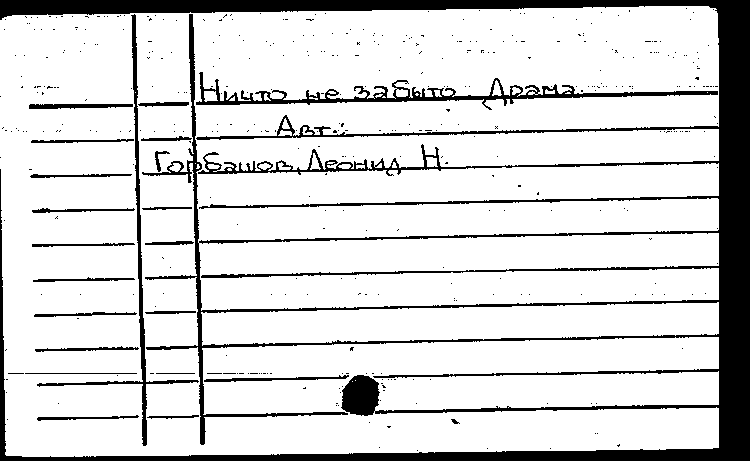 Ничто не забыто. Драма.
Авт.:
Горбашов, Леонид Н.